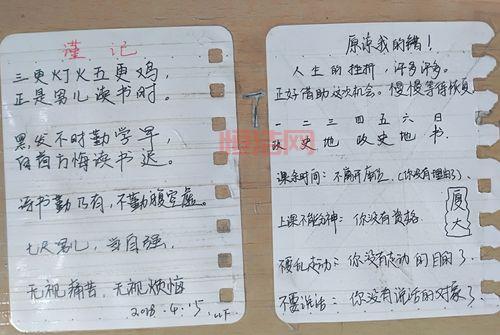 谨记
三更灯火五更鸡,
正是男儿读书时。
黑发不时勤学早,
白首方悔读书迟。
诗书勤乃有,不勤腹空虚。
七尺男儿,当自强,
无视痛苦,无视烦恼
2018.4.15.
原谅我的错!
人生的挫折,许多许多。
正好借助这次机会。慢慢等待恢复
一 二 三 四 五 六 日
政 史 地 政 史 地 书.
课余时间:不离开座位(你没有理由了)
上课不能分神:你没有资格.
厦大
不要乱走动:你没有走动的目的了.
不要说话:你没有说话的对象了.